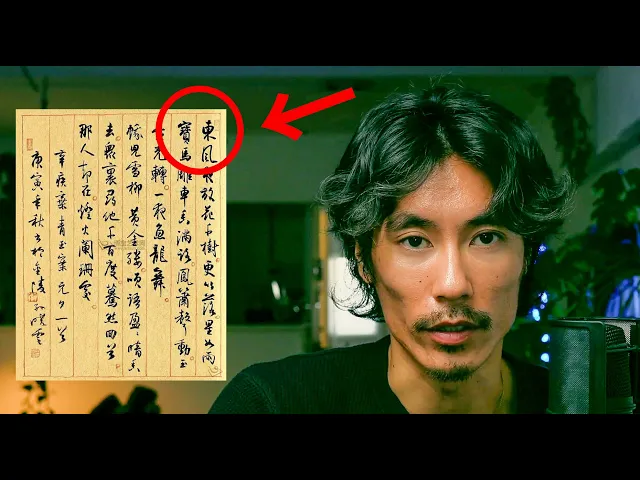 東風夜放花千樹更吹落星如雨
寶馬雕車香滿路鳳簫聲動玉
壺光轉一夜魚龍舞
蛾兒雪柳黃金縷笑語盈盈暗香
去眾裏尋他千百度驀然回首
那人卻在燈火闌珊處
辛疾棄青玉案元夕一首
庚寅年秋書於金陵孫曉雲